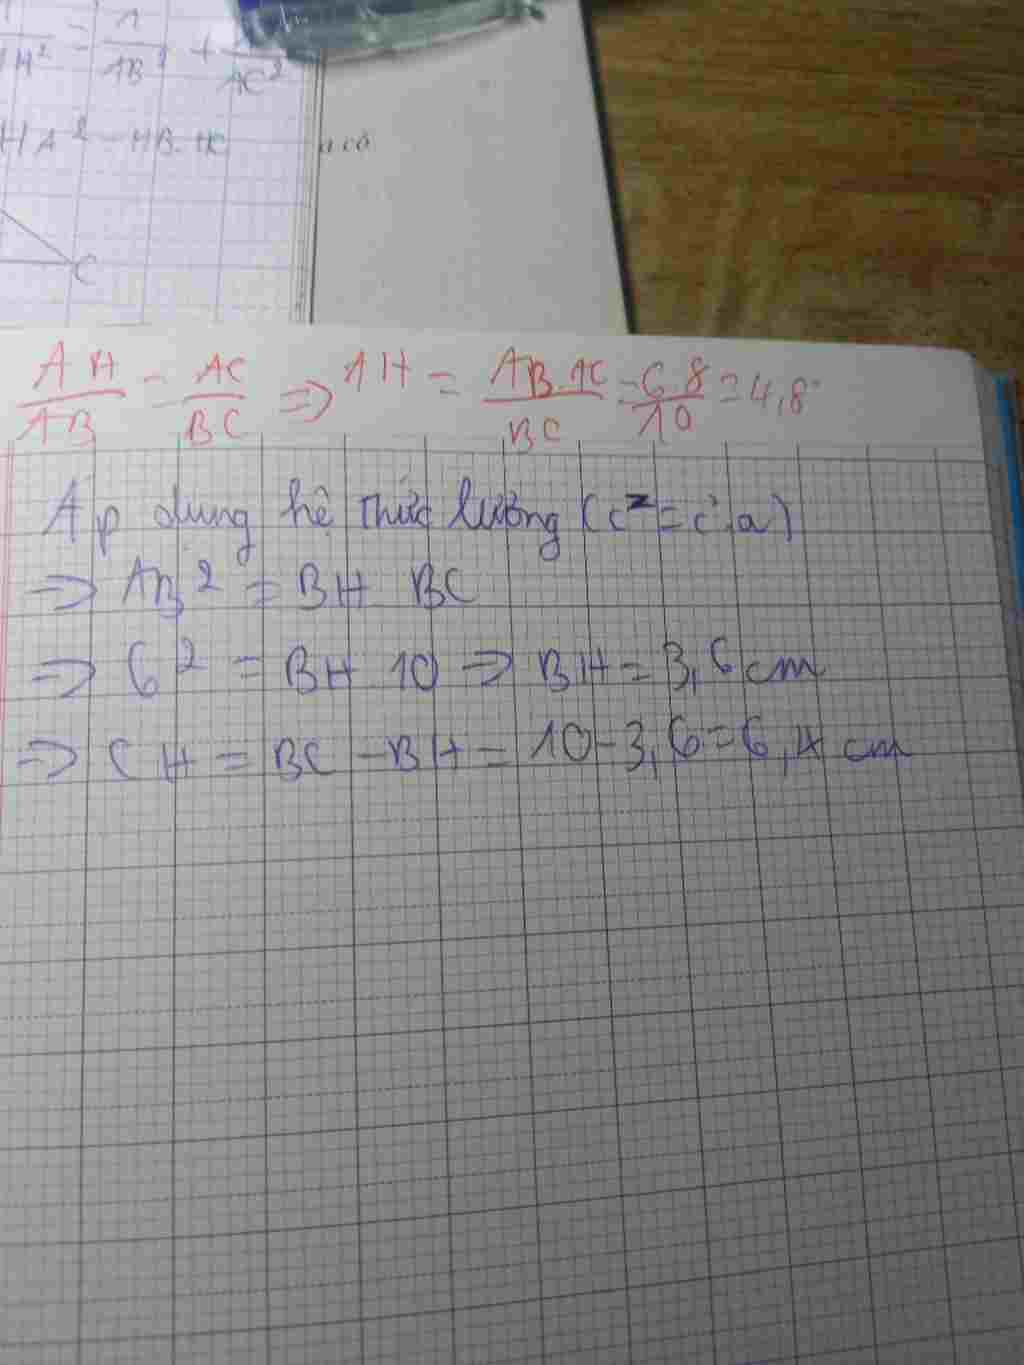 H² = 1/AB² + 1/AC²
HA² = HB.HC
C
AH/AB = AC/BC => AH = AB.AC/BC = 6.8/10 = 4,8
Áp dụng hệ thức lượng (c² = c'.a)
=> AB² = BH BC
=> 6² = BH 10 => BH = 3,6 cm
=> CH = BC - BH = 10 - 3,6 = 6,4 cm